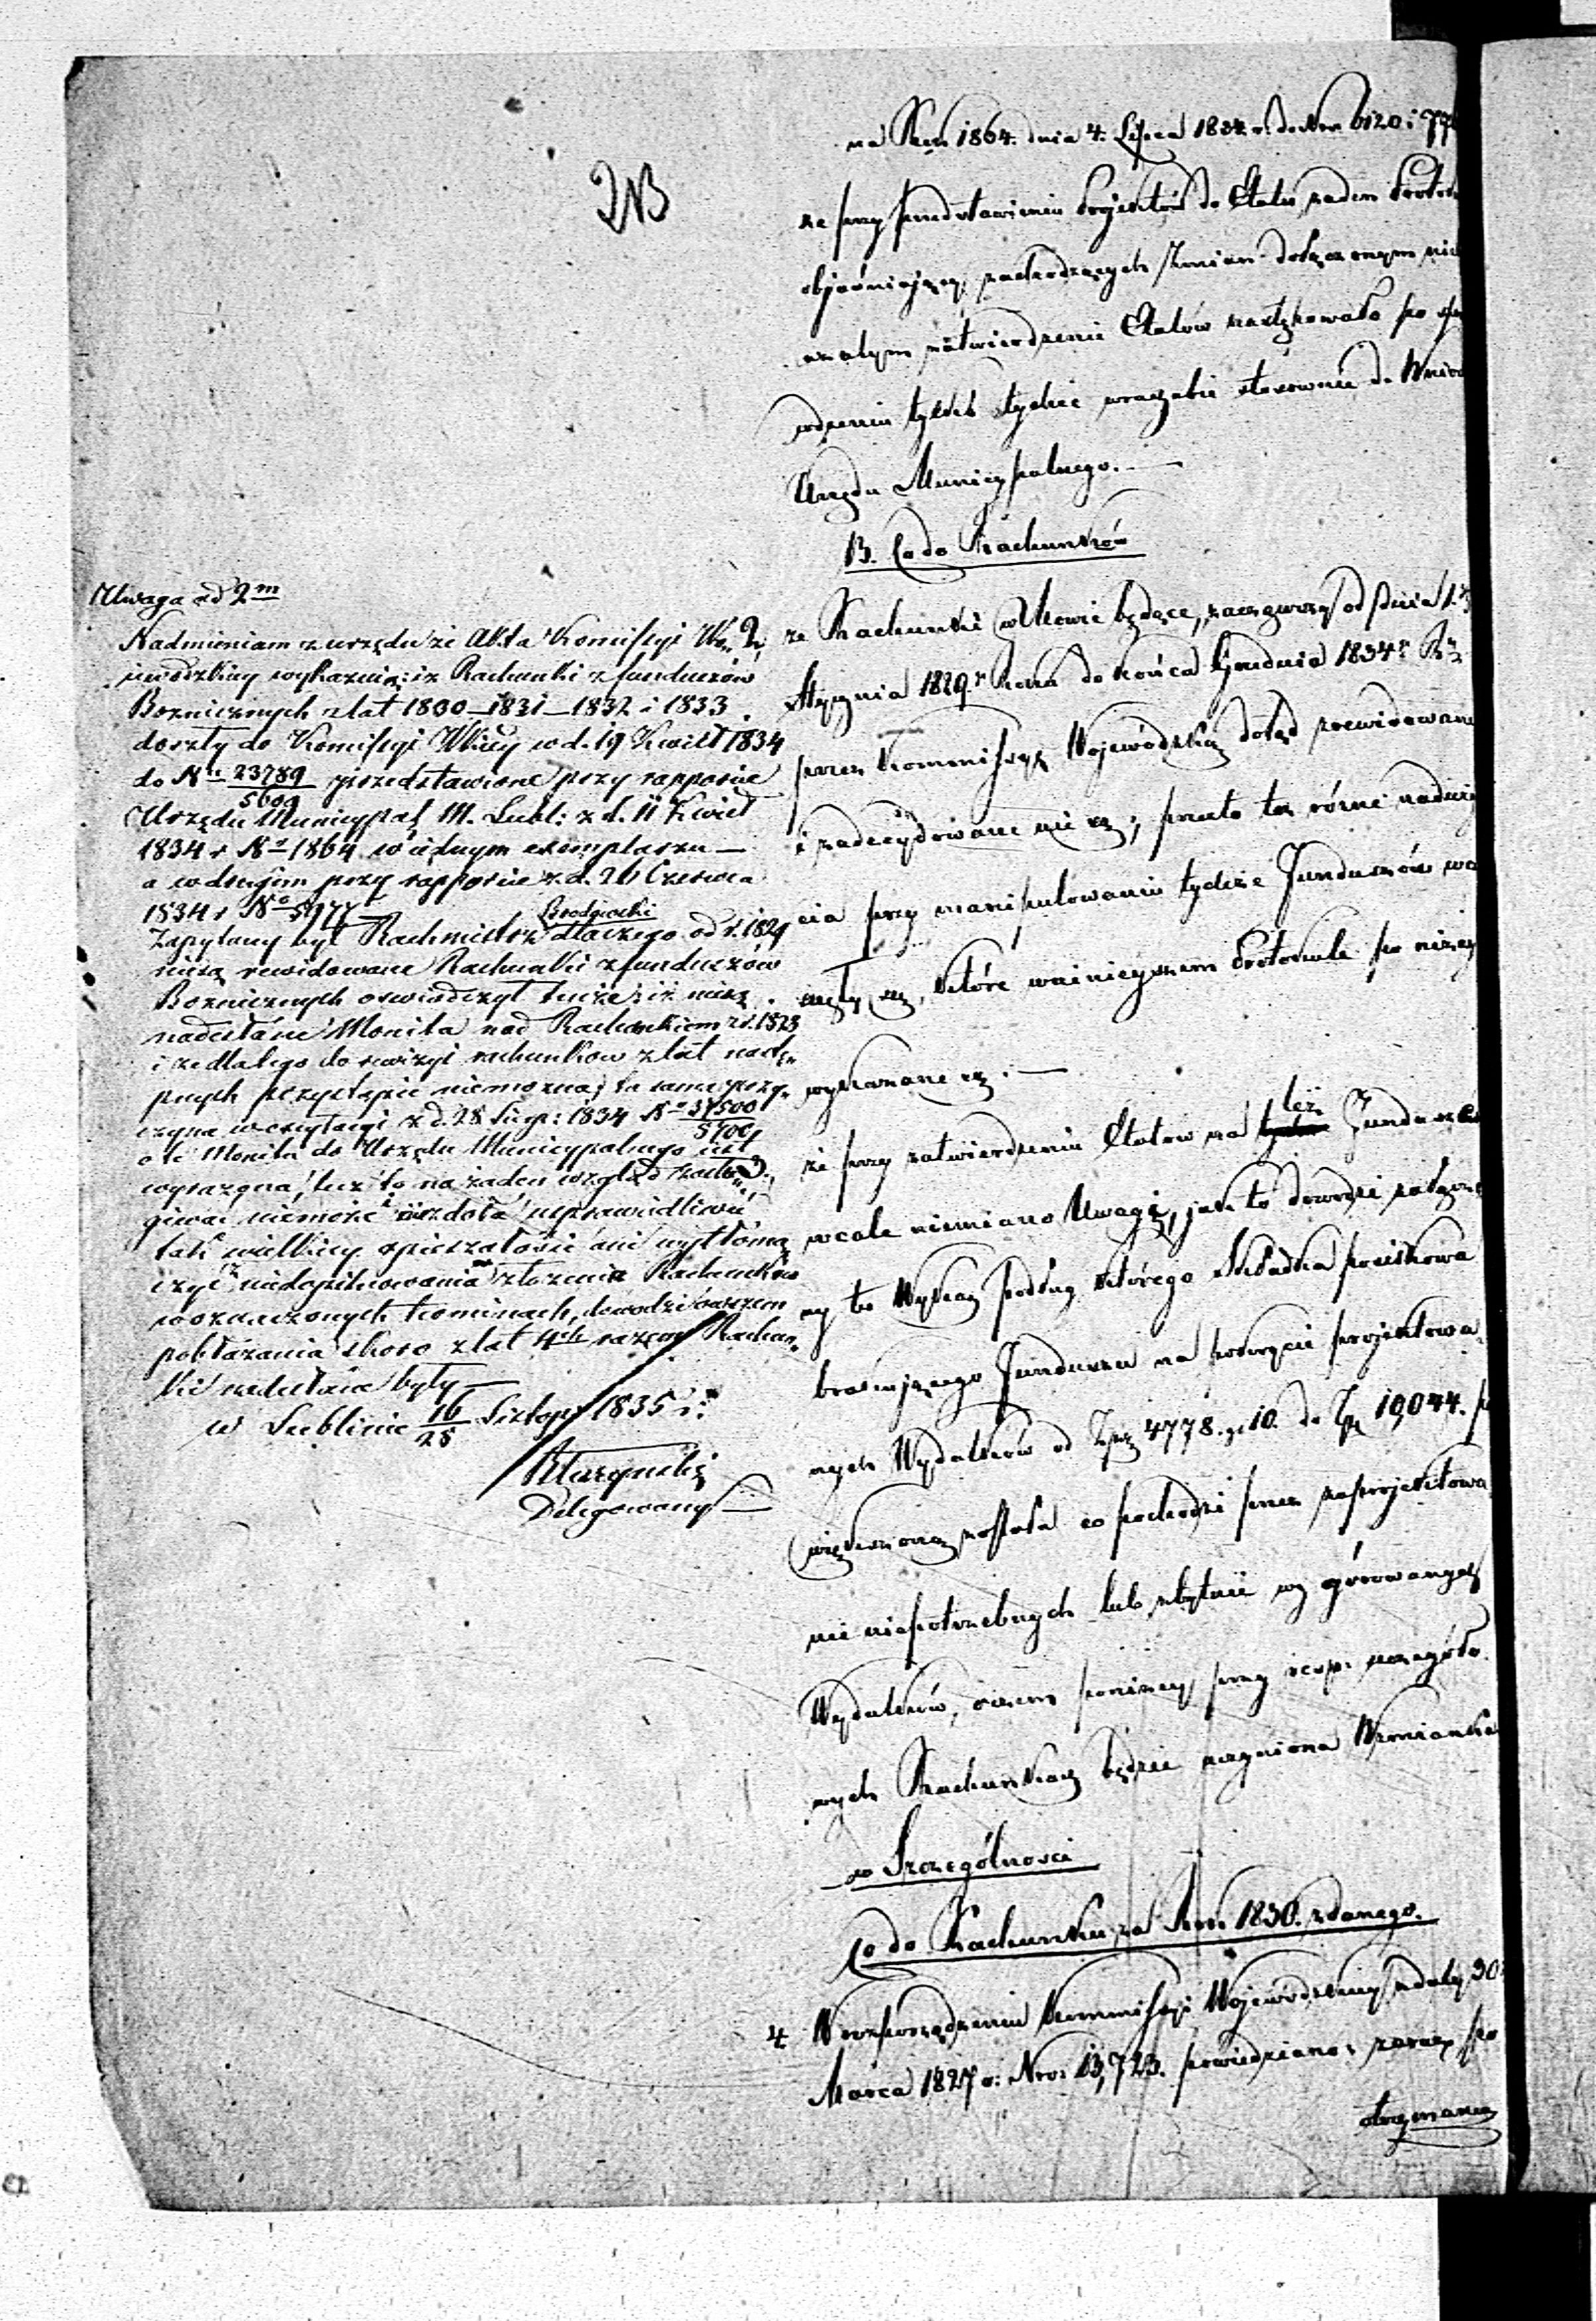 na Rem 1864. dnia 4. Lipca 1834 r. do Nru 6120 i
że przy przedstawieniu Projektów do Etatu żaden Protok
objaśniający zachodzących Zmian dołączonym nie
zatwierdzenie Etatów następowało po
tylko tychże stosownie do Wnios
Urzędu Municypalnego. —
B. Co do Rachunków
2, że Rachunki w Mowie będące, zacząwszy od dnia 1.
Stycznia 1829. r. do końca Grudnia 1834 r.
przez Kommissyę Wojewódzką dotąd zrewidowane
i zadecydowane nie są; przeto też różne naduży
cia przy manipulowaniu tychże Funduszów
są, które w niniejszem Protokule po niżej
wykazane są. —
3. że przy zatwierdzeniu Etatow na też Fundusze
wcale niemiano Uwagi, jak to dowodzi załączo
ny tu Wykaz podług którego Składka
brakującego Funduszu na pokrycie projektowa
nych Wydatków od Złp. 4778. g. 10. do Złp. 10,044.
większoną została co pochodzi przez zaprojektowa
nie niepotrzebnych lub zbytnie wygórowanych
Wydatków, o czem poniżej przy szczegóło
wych Rachunkach będzie uczyniona Wzmianka
w Szczególnosci
Co do Rachunku za Rok 1830. zdanego.
4 W rozporządzeniu Kommissyi Wojewódzkiey z daty 30
Marca 1827 r. Nro. 13,723. powiedziano: zaraz po
otrzymaniu
Uwaga ad 2m
Nadmieniam z urzędu że Akta Komissyi Wo
iewodzkiey wykazuią: iz Rachunki z funduszów
Boznicznych z lat 1830 – 1831 – 1832 i 1833
doszły do Komissyi Wkiey w d. 19 Kwiet 1834
do Nru 23789/5600 przedstawione przy rapporcie
Urzędu Municypal M. Lubl: z d. 11 Kwiet
1834 r No 1864 w iednym exemplarzu —
a w drugim przy rapporcie z d. 26 Czerwca
1834 r No 5977
Zapytany był Rachmistrz Brodzicki dlaczego od r. 1829
niesą rewidowane Rachunki z funduszów
Boznicznych oswiadczył tenże iż niesą
nadesłane Monita nad Rachunkiem z r. 1828
i że dlatego do rewizyi rachunkow z lat nastę
pnych przystąpić niemozna; ta sama przy
czyna w z d. 28 Sierp: 1834 No 37500/5400
o te Monita do Urzędu Municypalnego iest
wyrażona, lecz to na żaden wzgląd zasłu
giwać niemoże i niezdoła usprawiedliwić
tak wielkiey opieszałości ani wytłoma
czyć niedopilnowania złożenia Rachunków
w oznaczonych terminach, dowodzi owszem
pobłażania skoro z lat 4ch razem Rachun
ki nadesłane były —
w Lublinie 16/28 Listop 1835 r:
Delegowany